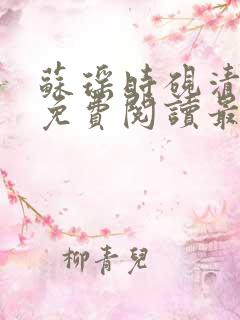 蘇瑶時硯清
免費閱讀最
柳青兒